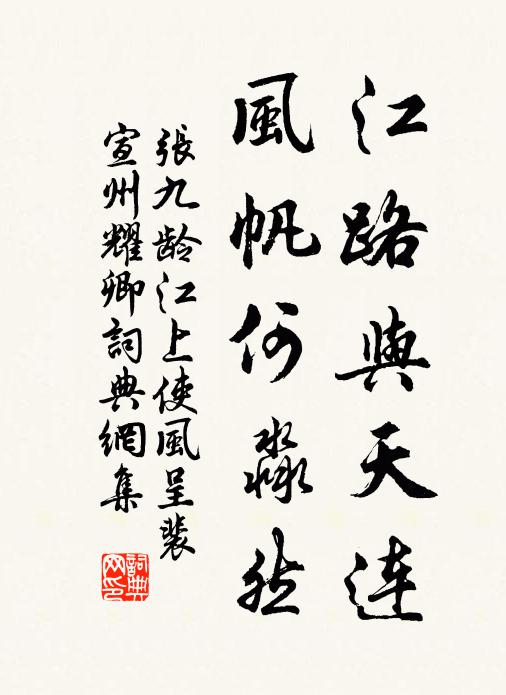 江路與天連
風帆何淼然
張九齡江上使風呈裴
宣州耀卿詞典網集
詞典網印